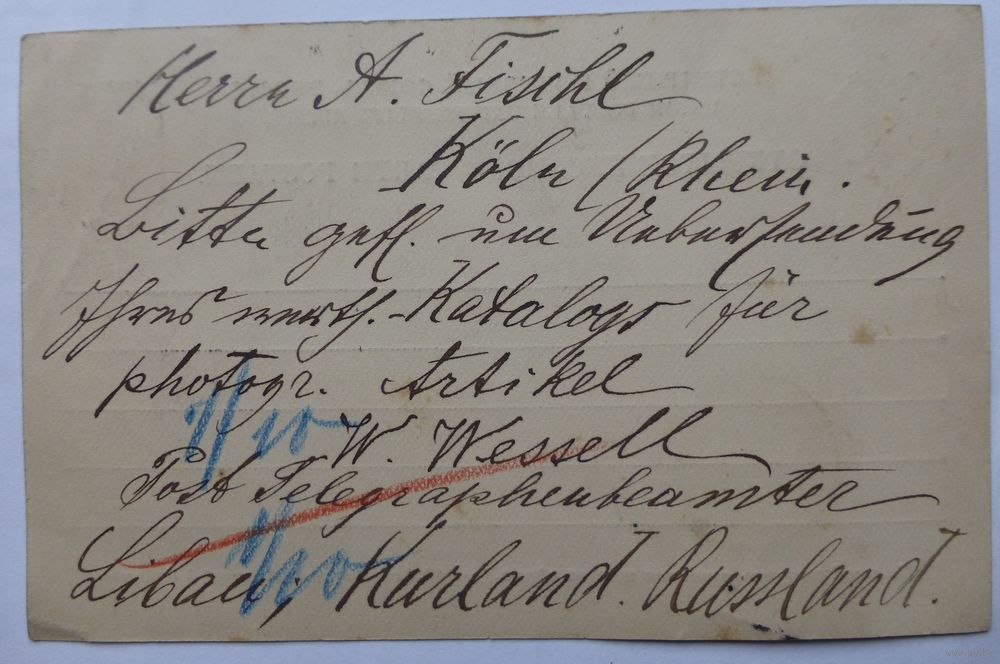 Herrn A. Fischl
Köln /Rhein.
Bitte gefl. um Uebersendung
Ihres werth. Katalogs für
photogr. Artikel
W. Wessell
Post Telegraphenbeamter
Libau, Kurland. Russland.